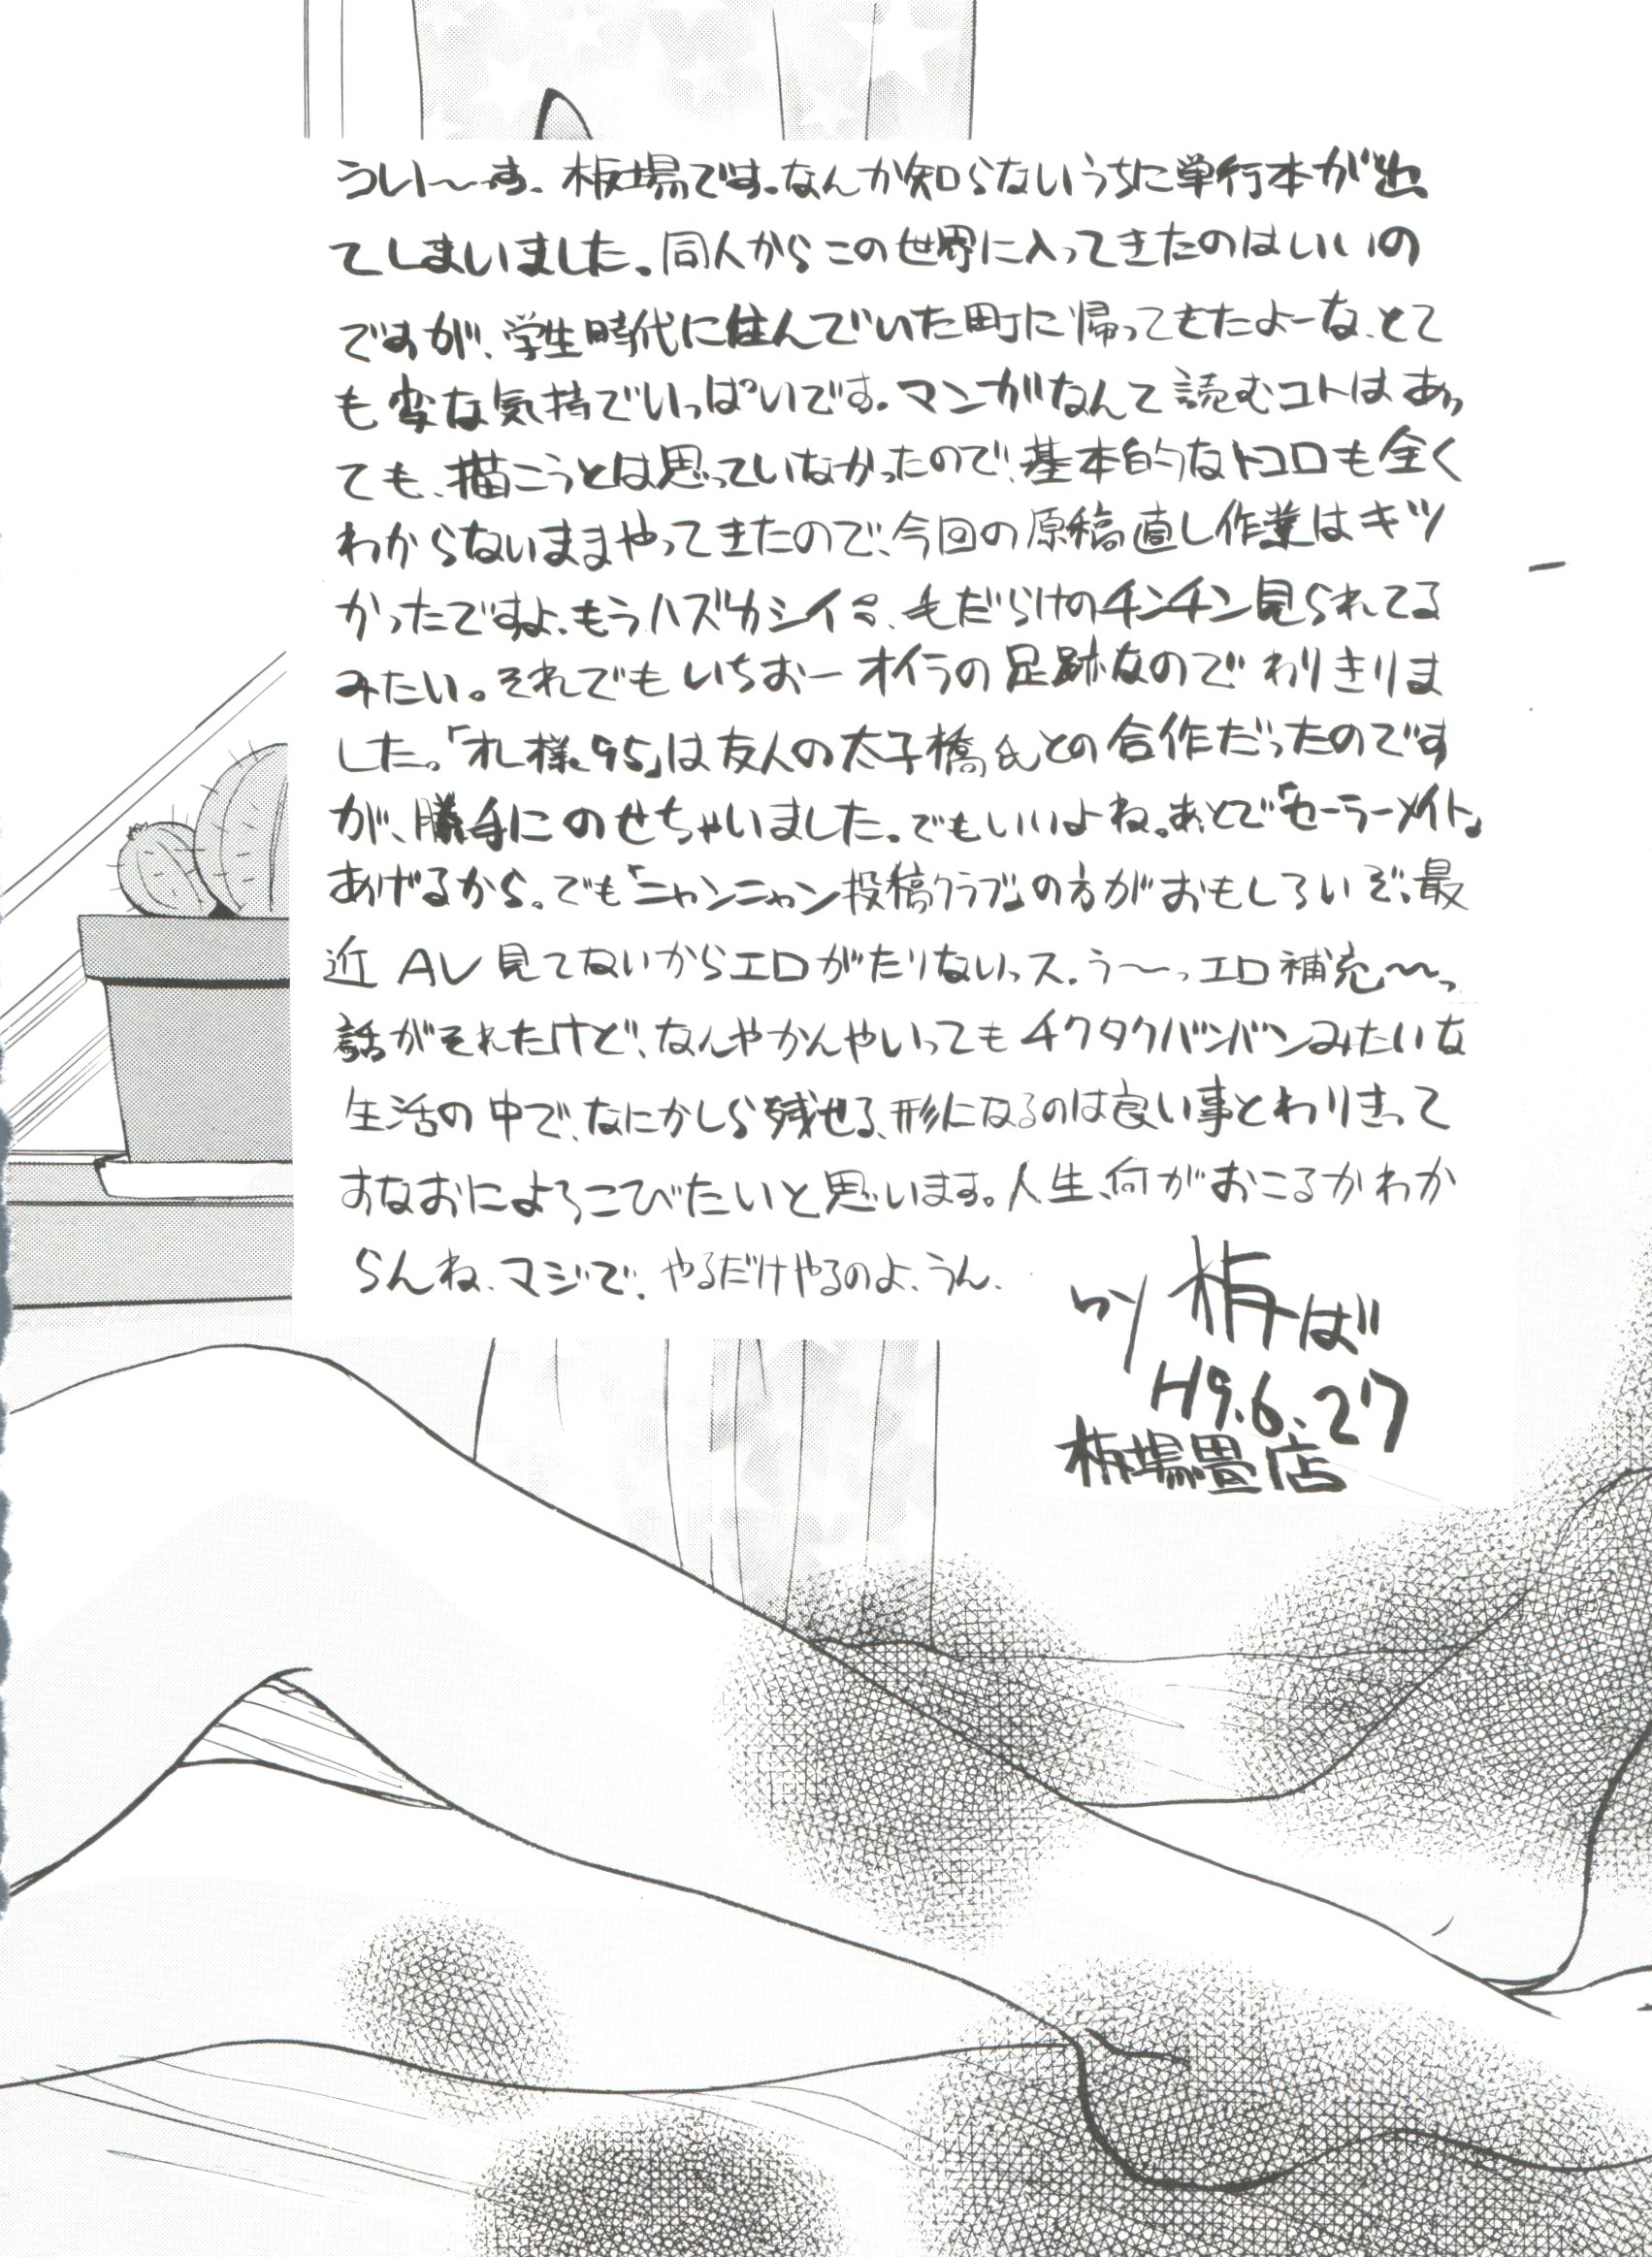 うい〜す。板場です。なんか知らないうちに単行本が出
てしまいました。同人からこの世界に入ってきたのはいいの
ですが、学生時代に住んでいた町に帰ってもたよーな、とて
も変な気持でいっぱいです。マンガなんて読むコトはあっ
ても、描こうとは思っていなかったので、基本的なトコロも全く
わからないままやってきたので、今回の原稿直し作業はキツ
かったですよ。もうハズカシイ、毛だらけのチンチン見られてる
みたい。それでもいちおーオイラの足跡なのでわりきりま
した。「札様95」は友人の太子橋氏との合作だったのです
が、勝手にのせちゃいました。でもいいよね。あとで「セーラーメイト」
あげるから。でも「ニャンニャン投稿クラブ」の方がおもしろいぞ。最
近AV見てないからエロがたりないっス。う〜〜っエロ補充〜〜っ
話がそれたけど、なんやかんやいってもチクタクバンバンみたいな
生活の中で、なにかしら残せる、形になるのは良い事とわりきって
すなおによろこびたいと思います。人生、何がおこるかわか
らんね、マジで。やるだけやるのよ、うん。
by 板ば
H9.6.27
板場畳店